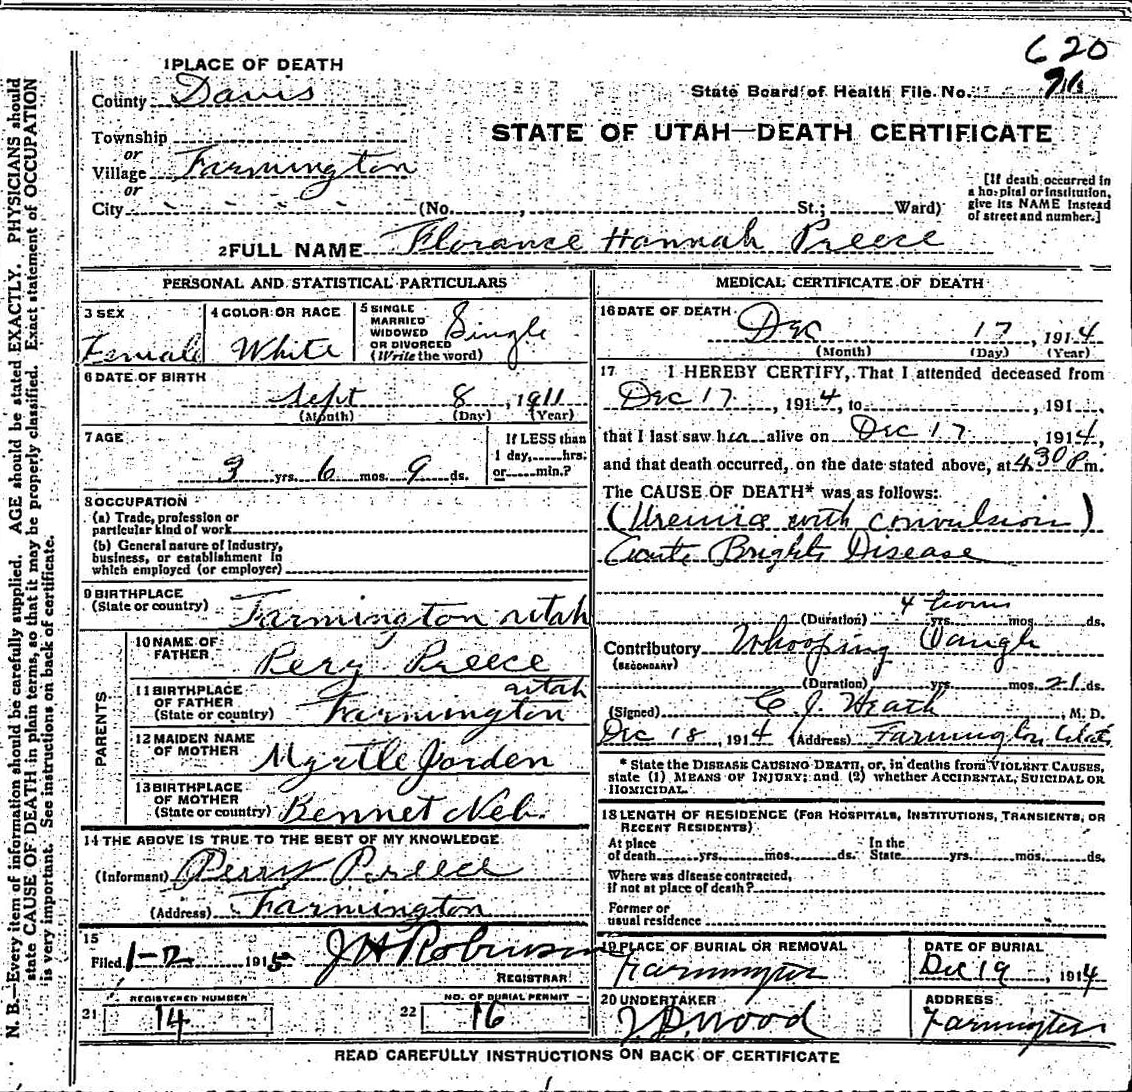 620
State Board of Health File No. 96
1 PLACE OF DEATH
County Davis
STATE OF UTAH—DEATH CERTIFICATE
Township
or
Village Farmington
or
City (No. , St.; Ward)
[If death occurred in
a hospital or institution,
give its NAME instead
of street and number.]
2 FULL NAME Florance Hannah Preece
PERSONAL AND STATISTICAL PARTICULARS
3 SEX
Female
4 COLOR OR RACE
White
5 SINGLE
MARRIED
WIDOWED
OR DIVORCED
(Write the word)
Single
6 DATE OF BIRTH
Sept 8, 1911
(Month) (Day) (Year)
7 AGE
3 yrs. 6 mos. 9 ds.
If LESS than
1 day, hrs.
or min.?
8 OCCUPATION
(a) Trade, profession or
particular kind of work
(b) General nature of Industry,
business, or establishment in
which employed (or employer)
9 BIRTHPLACE
(State or country) Farmington Utah
PARENTS
10 NAME OF
FATHER Pery Preece
11 BIRTHPLACE
OF FATHER
(State or country) Farmington Utah
12 MAIDEN NAME
OF MOTHER Myrtle Jorden
13 BIRTHPLACE
OF MOTHER
(State or country) Bennet Neb.
14 THE ABOVE IS TRUE TO THE BEST OF MY KNOWLEDGE
(Informant) Perry Preece
(Address) Farmington
15
Filed 1-2 1915 J H Robinson
REGISTRAR
21 REGISTERED NUMBER
14
22 NO. OF BURIAL PERMIT
16
MEDICAL CERTIFICATE OF DEATH
16 DATE OF DEATH
Dec 17, 1914
(Month) (Day) (Year)
17 I HEREBY CERTIFY, That I attended deceased from
Dec 17, 1914, to , 191 ,
that I last saw her alive on Dec 17, 1914,
and that death occurred, on the date stated above, at 4.30 P m.
The CAUSE OF DEATH* was as follows:
(Uremia with convulsion)
Acute Brights Disease
4 hours
(Duration) yrs. mos. ds.
Contributory Whooping Caugh
(SECONDARY)
(Duration) yrs. mos. 21 ds.
(Signed) C. J. Heath, M. D.
Dec 18, 1914 (Address) Farmington Utah
* State the DISEASE CAUSING DEATH, or, in deaths from VIOLENT CAUSES,
state (1) MEANS OF INJURY; and (2) whether ACCIDENTAL, SUICIDAL OR
HOMICIDAL.
18 LENGTH OF RESIDENCE (FOR HOSPITALS, INSTITUTIONS, TRANSIENTS, OR
RECENT RESIDENTS)
At place
of death yrs. mos. ds.
In the
State yrs. mos. ds.
Where was disease contracted,
if not at place of death?
Former or
usual residence
19 PLACE OF BURIAL OR REMOVAL
Farmington
DATE OF BURIAL
Dec 19, 1914
20 UNDERTAKER
Wood
ADDRESS
Farmington
READ CAREFULLY INSTRUCTIONS ON BACK OF CERTIFICATE
N. B.—Every item of information should be carefully supplied. AGE should be stated EXACTLY. PHYSICIANS should
state CAUSE OF DEATH in plain terms, so that it may be properly classified. Exact statement of OCCUPATION
is very important. See instructions on back of certificate.